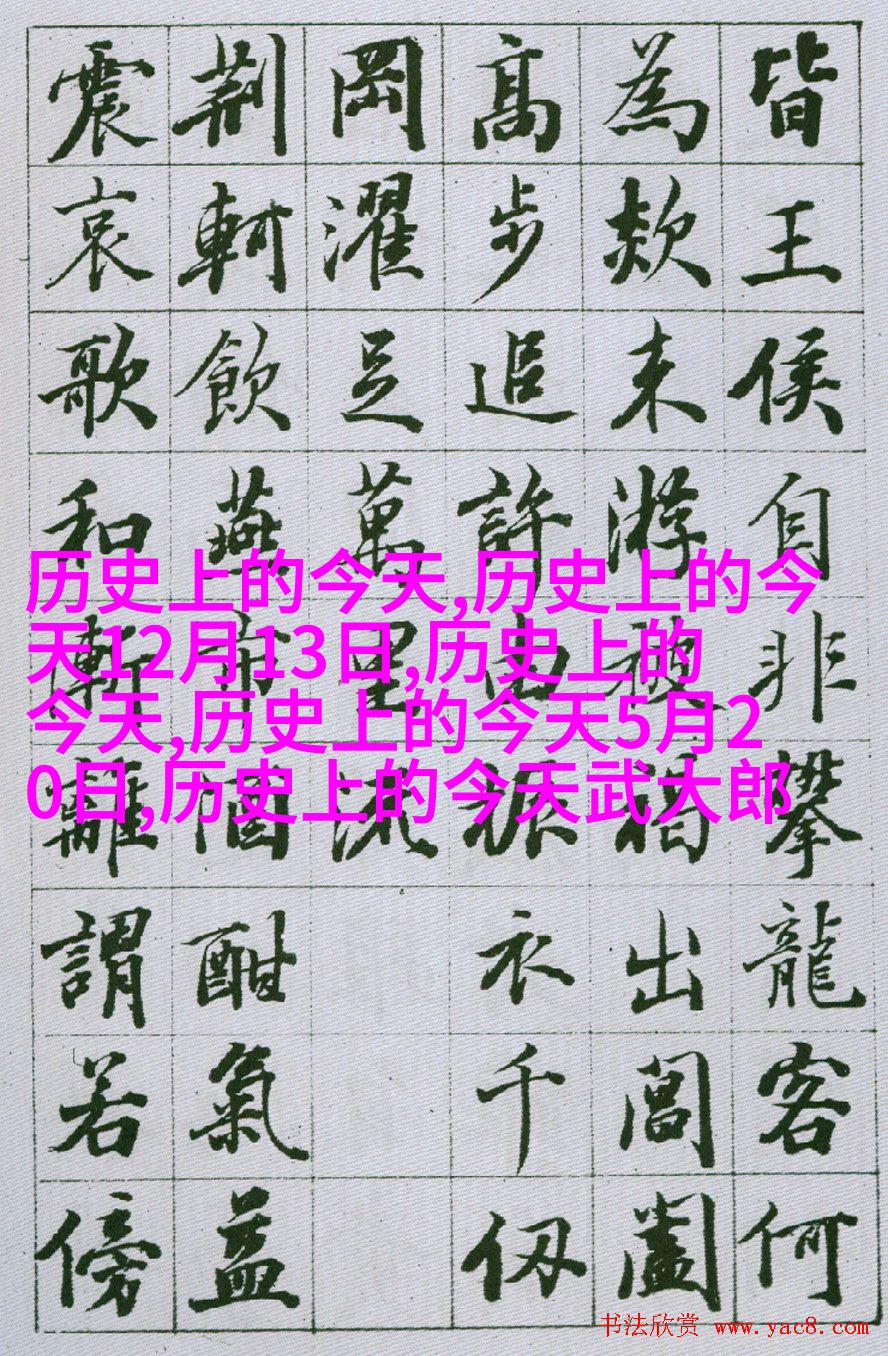 皆王侯自非攀龍客何
為欻来游被褐出閶闔
高步追許由振衣千仞
岡濯足萬里流
荆軻飲燕市酒酣氣益
震哀歌和漸離謂若傍
历史上的今天,历史上的今
天12月13日,历史上的
今天,历史上的今天5月2
0日,历史上的今天武大郎
书法欣赏 www.yac8.com